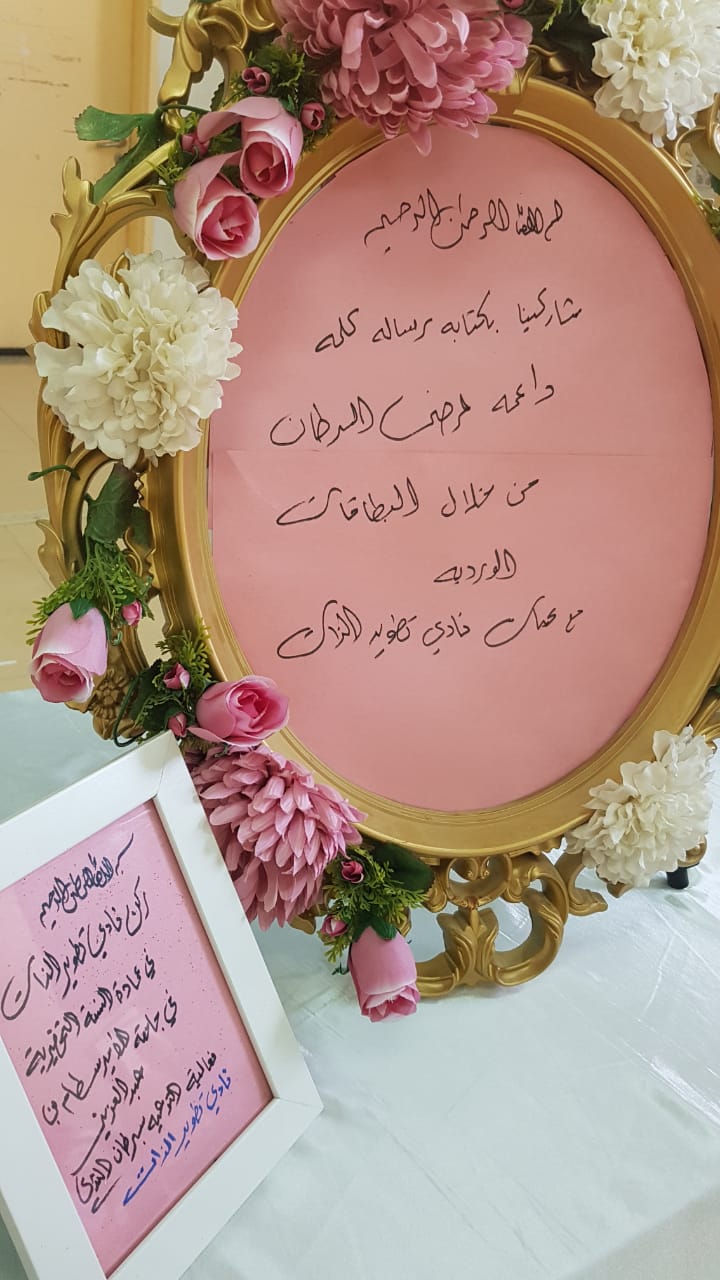 بسم الله الرحمن الرحيم
شاركينا بكتابه رساله كلمه
داعمه لمرضى السرطان
من خلال البطاقات
الورديه
مع تحيات نادي تطوير الذات
بسم الله الرحمن الرحيم
ركن نادي تطوير الذات
في عمادة السنة التحضيرية
في جامعة الأمير سطام بن
عبد العزيز
فعالية التوعيه بسرطان الثدي
نادي تطوير الذات